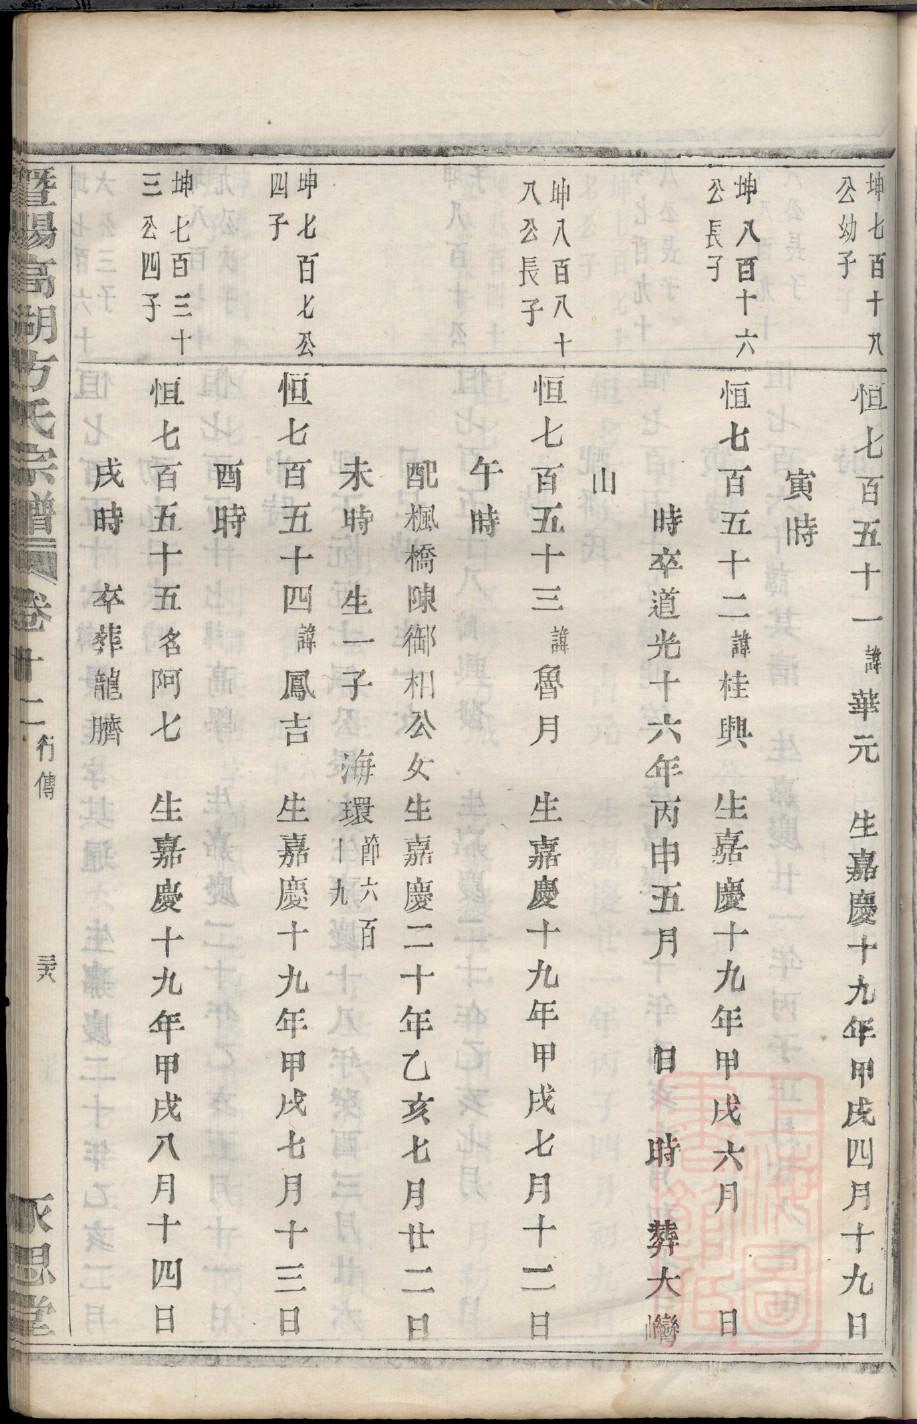 坤七百十八
公幼子
恒七百五十一諱華元 生嘉慶十九年甲戌四月十九日
寅時
坤八百十六
公長子
恒七百五十二諱桂興 生嘉慶十九年甲戌六月 日
時卒道光十六年丙申五月 日 時 葬大灣
山
坤八百八十
八公長子
恒七百五十三諱魯月 生嘉慶十九年甲戌七月十二日
午時
配楓橋陳御相公女生嘉慶二十年乙亥七月廿二日
未時 生一子 海環節六百十九
坤七百七公
四子
恒七百五十四諱鳳吉 生嘉慶十九年甲戌七月十三日
酉時
坤七百三十
三公四子
恒七百五十五名阿七 生嘉慶十九年甲戌八月十四日
戌時 卒葬龍臍
暨陽高湖方氏宗譜 卷十二 行傳 永思堂